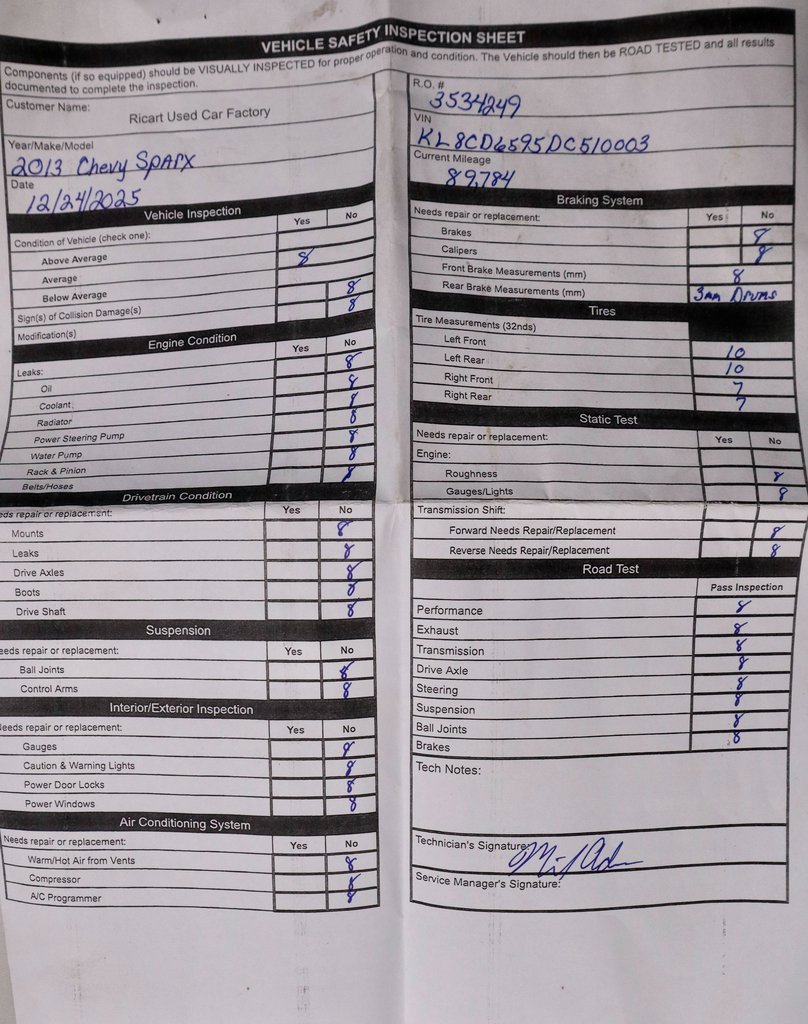 VEHICLE SAFETY INSPECTION SHEET
Components (if so equipped) should be VISUALLY INSPECTED for proper operation and condition. The Vehicle should then be ROAD TESTED and all results
documented to complete the inspection.
Customer Name: Ricart Used Car Factory
Year/Make/Model
2013 Chevy SPARK
Date
12/24/2025
Vehicle Inspection Yes No
Condition of Vehicle (check one):
Above Average 8
Average
Below Average 8
Sign(s) of Collision Damage(s) 8
Modification(s)
Engine Condition Yes No
Leaks: 8
Oil 8
Coolant 8
Radiator 8
Power Steering Pump 8
Water Pump 8
Rack & Pinion 8
Belts/Hoses
Drivetrain Condition
eds repair or replacement: Yes No
Mounts 8
Leaks 8
Drive Axles 8
Boots 8
Drive Shaft 8
Suspension
eeds repair or replacement: Yes No
Ball Joints 8
Control Arms 8
Interior/Exterior Inspection
Needs repair or replacement: Yes No
Gauges 8
Caution & Warning Lights 8
Power Door Locks 8
Power Windows 8
Air Conditioning System
Needs repair or replacement: Yes No
Warm/Hot Air from Vents 8
Compressor 8
A/C Programmer 8
R.O. #
3534249
VIN
KL8CD6595DC510003
Current Mileage
89,784
Braking System
Needs repair or replacement: Yes No
Brakes 8
Calipers 8
Front Brake Measurements (mm) 8
Rear Brake Measurements (mm) 3mm Drums
Tires
Tire Measurements (32nds)
Left Front 10
Left Rear 10
Right Front 7
Right Rear 7
Static Test
Needs repair or replacement: Yes No
Engine:
Roughness 8
Gauges/Lights 8
Transmission Shift:
Forward Needs Repair/Replacement 8
Reverse Needs Repair/Replacement 8
Road Test
Pass Inspection
Performance 8
Exhaust 8
Transmission 8
Drive Axle 8
Steering 8
Suspension 8
Ball Joints 8
Brakes 8
Tech Notes:
Technician's Signature:
Service Manager's Signature: